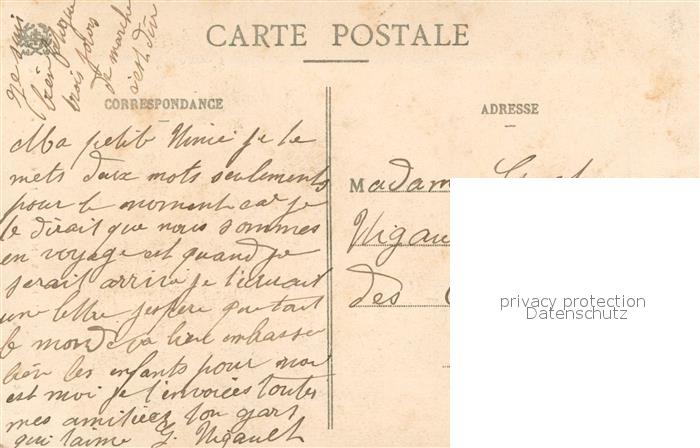 CARTE POSTALE
CORRESPONDANCE
ADRESSE
Je suis
bien fatigué
trois jours
de marche
c'est dur
Ma petite Ninie je te
mets deux mots seulements
pour le moment car je
te dirait que nous sommes
en voyage et quand je
serait arrivé je t'écruait
une lettre j'espere que tout
le monde va bien embasse
bien les enfants pour moi
est moi je t'envoiées toutes
mes amitiées ton gars
qui t'aime G. Nigault
Madam
Nigau
des
privacy protection
Datenschutz